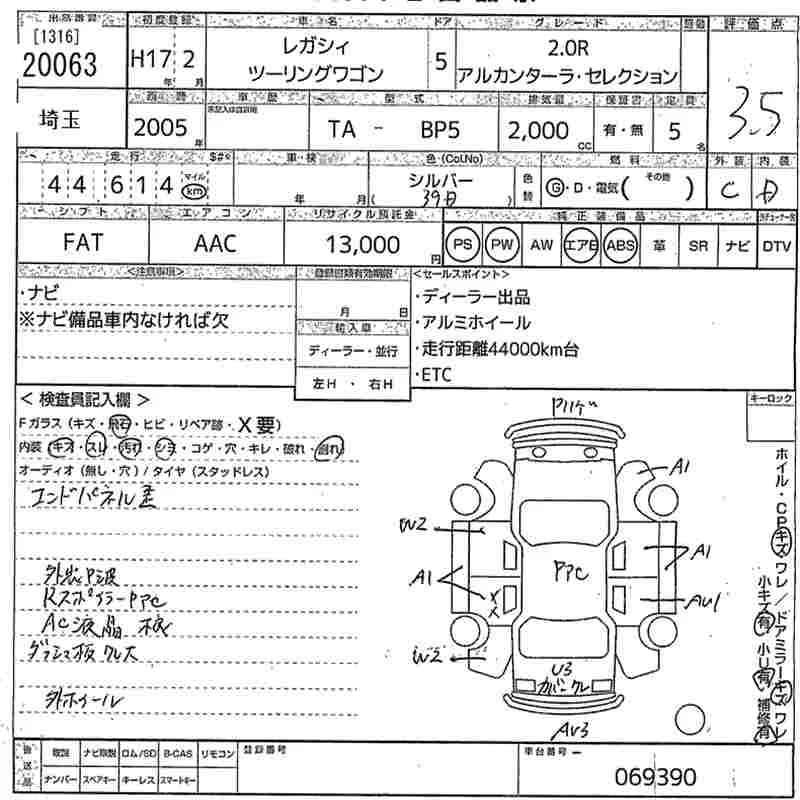 出品番号 初度登録 車名 ドア グレード 評価点
[1316]
20063
H17 2
年 月
レガシィ
ツーリングワゴン
5
2.0R
アルカンターラ・セレクション
3.5
埼玉
車歴 型式 排気量 保証書 定員
2005 年
TA - BP5
2,000 cc
有・無
5 名
走行 車・検 色(Col.No) 燃料 外装 内装
44614
マイル
km
年 月
シルバー
39D
色替
G・D・電気( その他 )
C
シフト エアコン リサイクル預託金 純正装備品
FAT
AAC
13,000 円
PS PW AW エアB ABS 革 SR ナビ DTV
<注意事項>
・ナビ
※ナビ備品車内なければ欠
登録書類有効期限
月 日
輸入車
ディーラー・並行
左H ・ 右H
<セールスポイント>
・ディーラー出品
・アルミホイール
・走行距離44000km台
・ETC
<検査員記入欄>
Fガラス(キズ・飛石・ヒビ・リペア跡・X要)
内装(キズ・スレ・汚れ・シミ・コゲ・穴・キレ・破れ・割れ)
オーディオ(無し・穴)/タイヤ(スタッドレス)
エンドパネル
RスポイラーPAC
AC液晶
外ホイール
キーロック
A1
W2
A1
A1
AU1
W2
U3
AU3
ホイル・CPキズ ワレ/ドアミラーキズ ワレ
小キズ有 小U有 補修有
取説 ナビ取説 ロム/SD B-CAS リモコン
ナンバー スペアキー キーレス スマートキー
登録番号
車台番号
069390